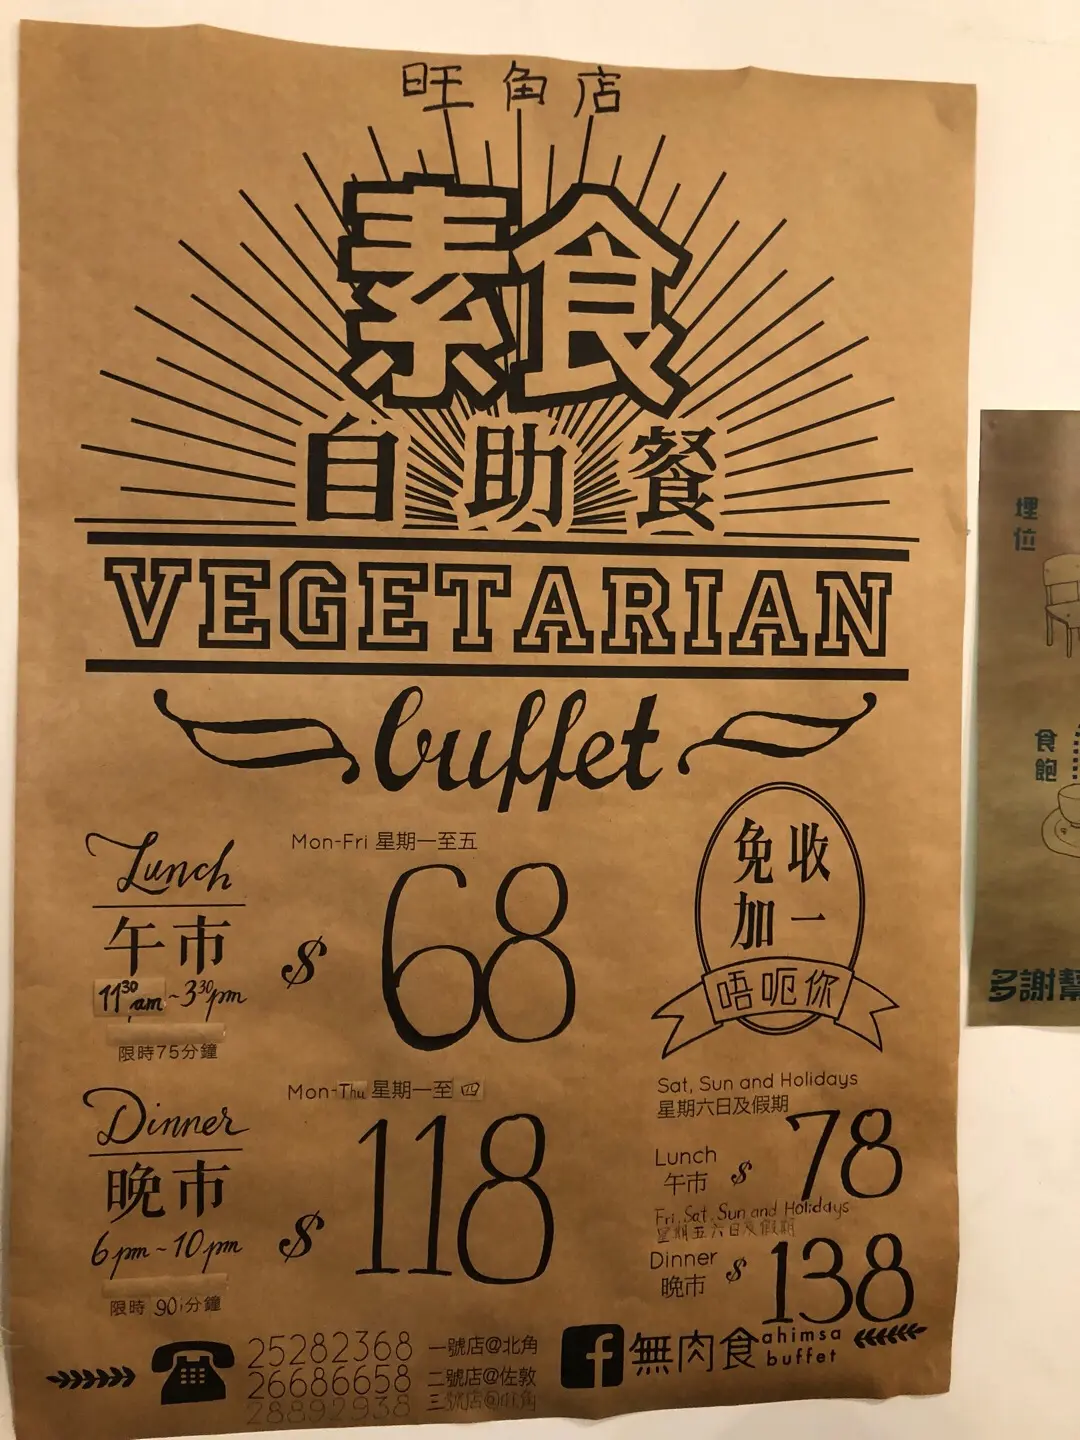 旺角店
素食
自助餐
VEGETARIAN
buffet
Lunch
午市
11:30 am ~ 3:30 pm
限時75分鐘
Mon-Fri 星期一至五
$ 68
免收
加一
唔呃你
Dinner
晚市
6 pm ~ 10 pm
限時 90 分鐘
Mon-Thu 星期一至四
$ 118
Sat, Sun and Holidays
星期六日及假期
Lunch
午市
$ 78
Fri, Sat, Sun and Holidays
星期五六日及假期
Dinner
晚市
$ 138
25282368 一號店@北角
26686658 二號店@佐敦
28892938 三號店@旺角
f 無肉食 ahimsa buffet
埋位
食飽
多謝幫